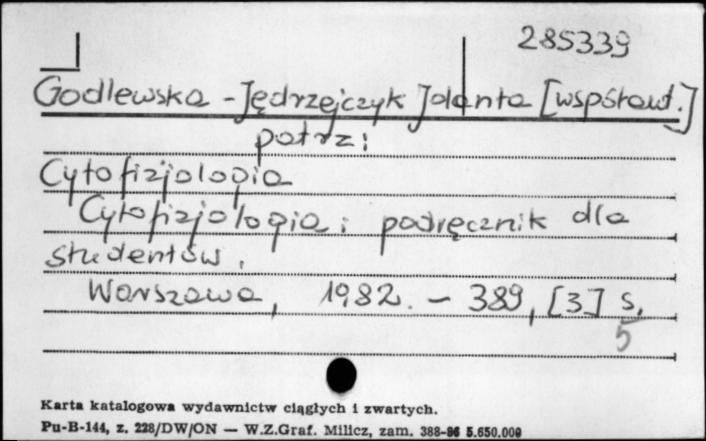 285339
Godlewska-Jędrzejczyk Jolanta [współaut.]
patrz:
Cytofizjologia
Cytofizjologia: podręcznik dla
studentów.
Warszawa, 1982. – 389, [3] s.
5
Karta katalogowa wydawnictw ciągłych i zwartych.
Pu-B-144, z. 228/DW/ON — W.Z.Graf. Milicz, zam. 388-86 5.650.000